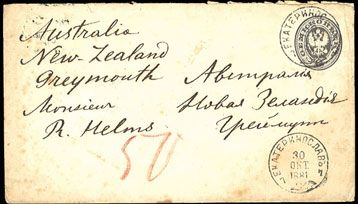 Australia
New-Zealand
Greymouth
Monsieur
R. Helms
Австралія
Новая Зеландія
Греймутъ
50
ЕКАТЕРИНОСЛАВЪ
ЕКАТЕРИНОСЛАВЪ
30
ОКТ
1881